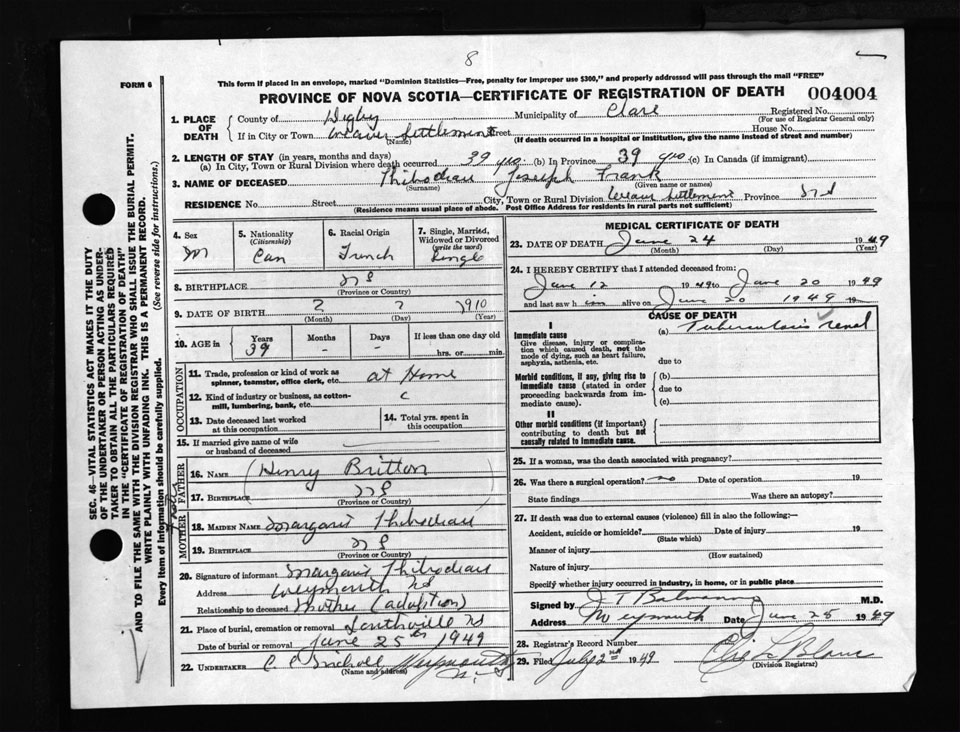 8
FORM 6
This form if placed in an envelope, marked "Dominion Statistics—Free, penalty for improper use $300," and properly addressed will pass through the mail "FREE"
PROVINCE OF NOVA SCOTIA—CERTIFICATE OF REGISTRATION OF DEATH 004004
1. PLACE OF DEATH
County of Digby Municipality of Clare Registered No.
(For use of Registrar General only)
If in City or Town Weaver Settlement Street House No.
(Name) (If death occurred in a hospital or institution, give the name instead of street and number)
2. LENGTH OF STAY (in years, months and days)
(a) In City, Town or Rural Division where death occurred 39 yrs. (b) In Province 39 yrs (c) In Canada (if immigrant)
3. NAME OF DECEASED Thibodeau Joseph Frank
(Surname) (Given name or names)
RESIDENCE No. Street City, Town or Rural Division Settlement Province
(Residence means usual place of abode. Post Office Address for residents in rural parts not sufficient)
4. Sex M
5. Nationality (Citizenship) Can
6. Racial Origin French
7. Single, Married, Widowed or Divorced (write the word) Single
8. BIRTHPLACE N S
(Province or Country)
9. DATE OF BIRTH ? ? 1910
(Month) (Day) (Year)
10. AGE in Years 39 Months - Days - If less than one day old hrs. or min.
OCCUPATION
11. Trade, profession or kind of work as spinner, teamster, office clerk, etc. at Home
12. Kind of industry or business, as cotton-mill, lumbering, bank, etc.
13. Date deceased last worked at this occupation
14. Total yrs. spent in this occupation
15. If married give name of wife or husband of deceased
FATHER
16. NAME (Henry Britton)
17. BIRTHPLACE N S
(Province or Country)
MOTHER
18. MAIDEN NAME Margaret Thibodeau
19. BIRTHPLACE N S
(Province or Country)
20. Signature of informant Margaret Thibodeau
Address Weymouth NS
Relationship to deceased Mother (adoption)
21. Place of burial, cremation or removal NS
Date of burial or removal June 25th 1949
22. UNDERTAKER Weymouth N.S.
(Name and address)
MEDICAL CERTIFICATE OF DEATH
23. DATE OF DEATH June 24 1949
(Month) (Day) (Year)
24. I HEREBY CERTIFY that I attended deceased from:
June 12 1949 to June 20 1949
and last saw him alive on June 20 1949 19
CAUSE OF DEATH
I
Immediate cause (a) Tuberculosis renal
Give disease, injury or complication which caused death, not the mode of dying, such as heart failure, asphyxia, asthenia, etc.
due to
Morbid conditions, if any, giving rise to immediate cause (stated in order proceeding backwards from immediate cause).
(b)
due to
(c)
II
Other morbid conditions (if important) contributing to death but not causally related to immediate cause.
25. If a woman, was the death associated with pregnancy?
26. Was there a surgical operation? no Date of operation 19
State findings Was there an autopsy?
27. If death was due to external causes (violence) fill in also the following:
Accident, suicide or homicide? Date of injury 19
(State which)
Manner of injury
(How sustained)
Nature of injury
Specify whether injury occurred in industry, in home, or in public place
Signed by M.D.
Address Weymouth Date June 25 1949
28. Registrar's Record Number
29. Filed July 2nd 1949
(Division Registrar)
SEC. 46—VITAL STATISTICS ACT MAKES IT THE DUTY
OF THE UNDERTAKER OR PERSON ACTING AS UNDER-
TAKER TO OBTAIN ALL THE PARTICULARS REQUIRED
IN THE "CERTIFICATE OF REGISTRATION OF DEATH"
AND TO FILE THE SAME WITH THE DIVISION REGISTRAR WHO SHALL ISSUE THE BURIAL PERMIT.
WRITE PLAINLY WITH UNFADING INK. THIS IS A PERMANENT RECORD.
Every item of Information should be carefully supplied. (See reverse side for instructions.)